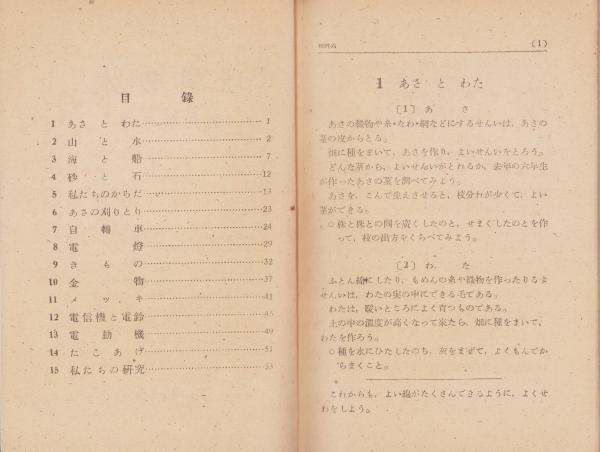 目錄
1 あさ と わた 1
2 山 と 水 2
3 海 と 船 7
4 砂 と 石 12
5 私たちのからだ 13
6 あさの刈りとり 23
7 自轉車 24
8 電燈 29
9 きもの 32
10 金物 37
11 メッキ 41
12 電信機と電鈴 45
13 電動機 49
14 たこあげ 51
15 私たちの研究 53
(1)
1 あさ と わた
〔1〕 あ さ
あさの織物や糸・なわ・綱などにするせんいは，あさの
莖の皮からとる。
畑に種をまいて，あさを作り，よいせんいをとろう。
どんな莖から，よいせんいがとれるか，去年の六年生
が作ったあさの莖を調べてみよう。
あさを，こんで生えさせると，枝分れが少くて，よい
莖ができる。
○株と株との間を廣くしたのと，せまくしたのとを作
って，枝の出方をくらべてみよう。
〔2〕 わ た
ふとん綿にしたり，もめんの糸や織物を作ったりするよ
せんいは，わたの実の中にできる毛である。
わたは，暖いところによく育つものである。
土の中の温度が高くなって来たら，畑に種をまいて，
わたを作ろう。
○種を水にひたしたのち，灰をまぜて，よくもんでか
らまくこと。
これからも，よい綿がたくさんできるように，よくせ
わをしよう。